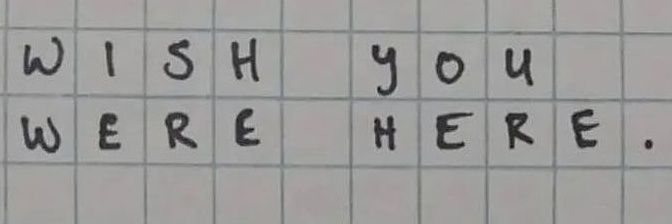 WISH YOU
WERE HERE.